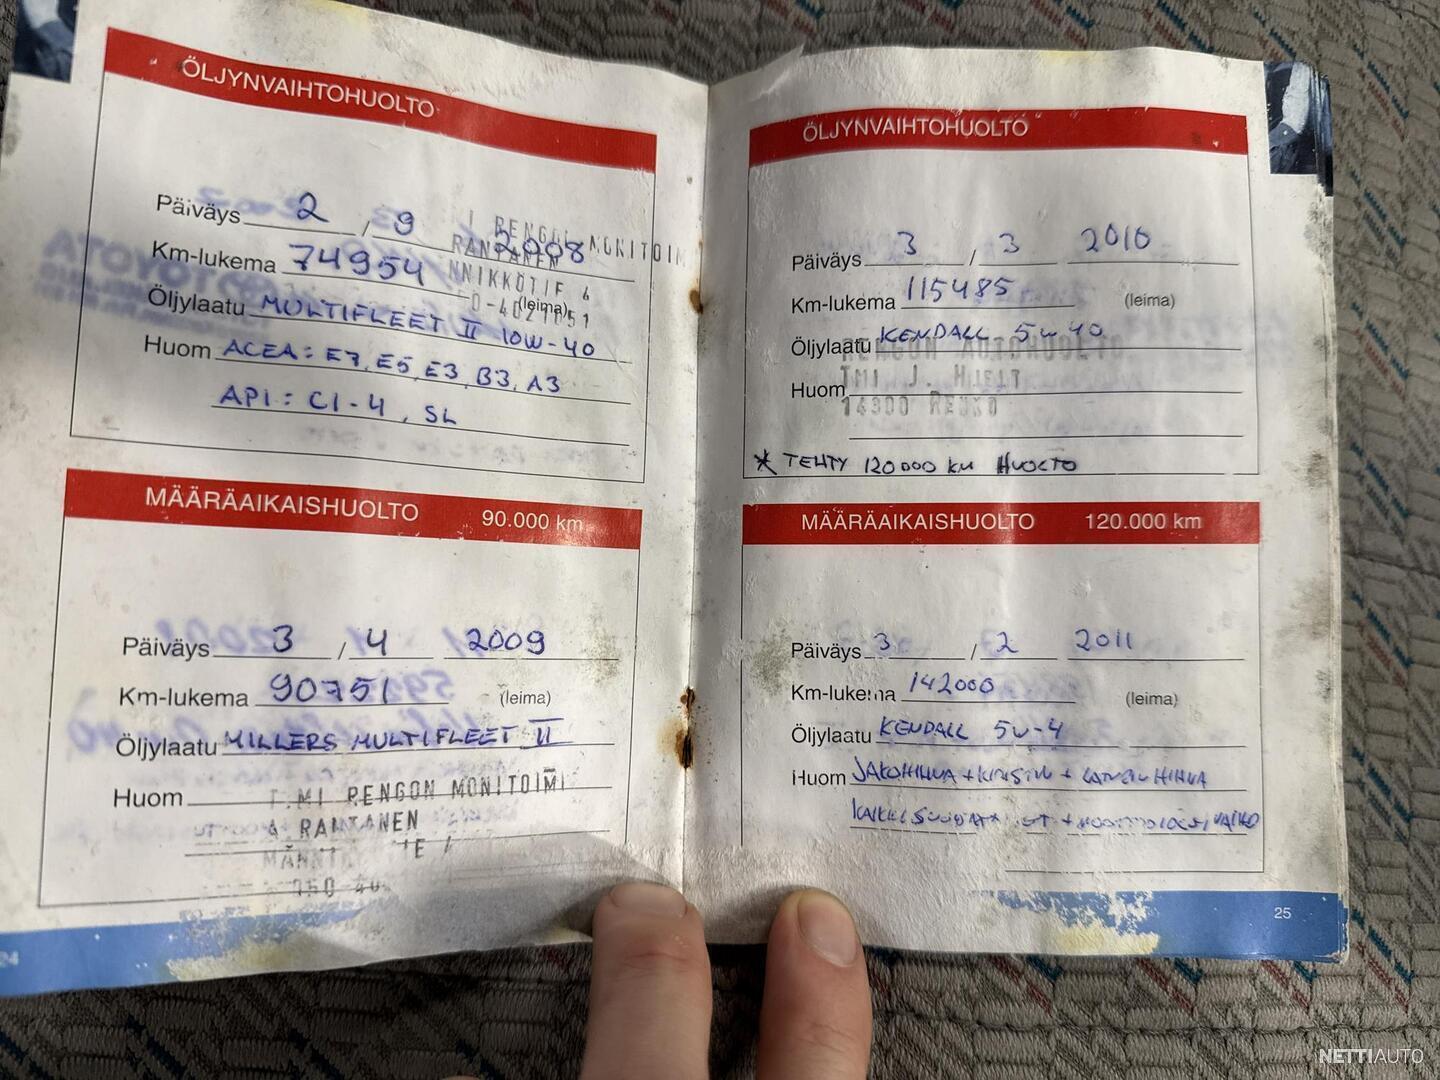 ÖLJYNVAIHTOHUOLTO
Päiväys 2 / 9 2008
Km-lukema 74954 (leima)
Öljylaatu MULTIFLEET II 10W-40
Huom ACEA: E7, E5, E3, B3, A3
API: CI-4, SL
RENGON MONITOIMI
RANTANEN
MÄÄRÄAIKAISHUOLTO 90.000 km
Päiväys 3 / 4 2009
Km-lukema 90751 (leima)
Öljylaatu MILLERS MULTIFLEET II
Huom
T:MI RENGON MONITOIMI
A. RANTANEN
24
ÖLJYNVAIHTOHUOLTO
Päiväys 3 / 3 2010
Km-lukema 115485 (leima)
Öljylaatu KENDALL 5w40
Huom
RENGON AUTOHUOLTO
TMI J. HUELT
14300 RENKO
* TEHTY 120000 km HUOLTO
MÄÄRÄAIKAISHUOLTO 120.000 km
Päiväys 3 / 2 2011
Km-lukema 142000 (leima)
Öljylaatu KENDALL 5w-4
Huom JAKOHIHNA + KIRISTIN + LATURIN HIHNA
25
NETTIAUTO